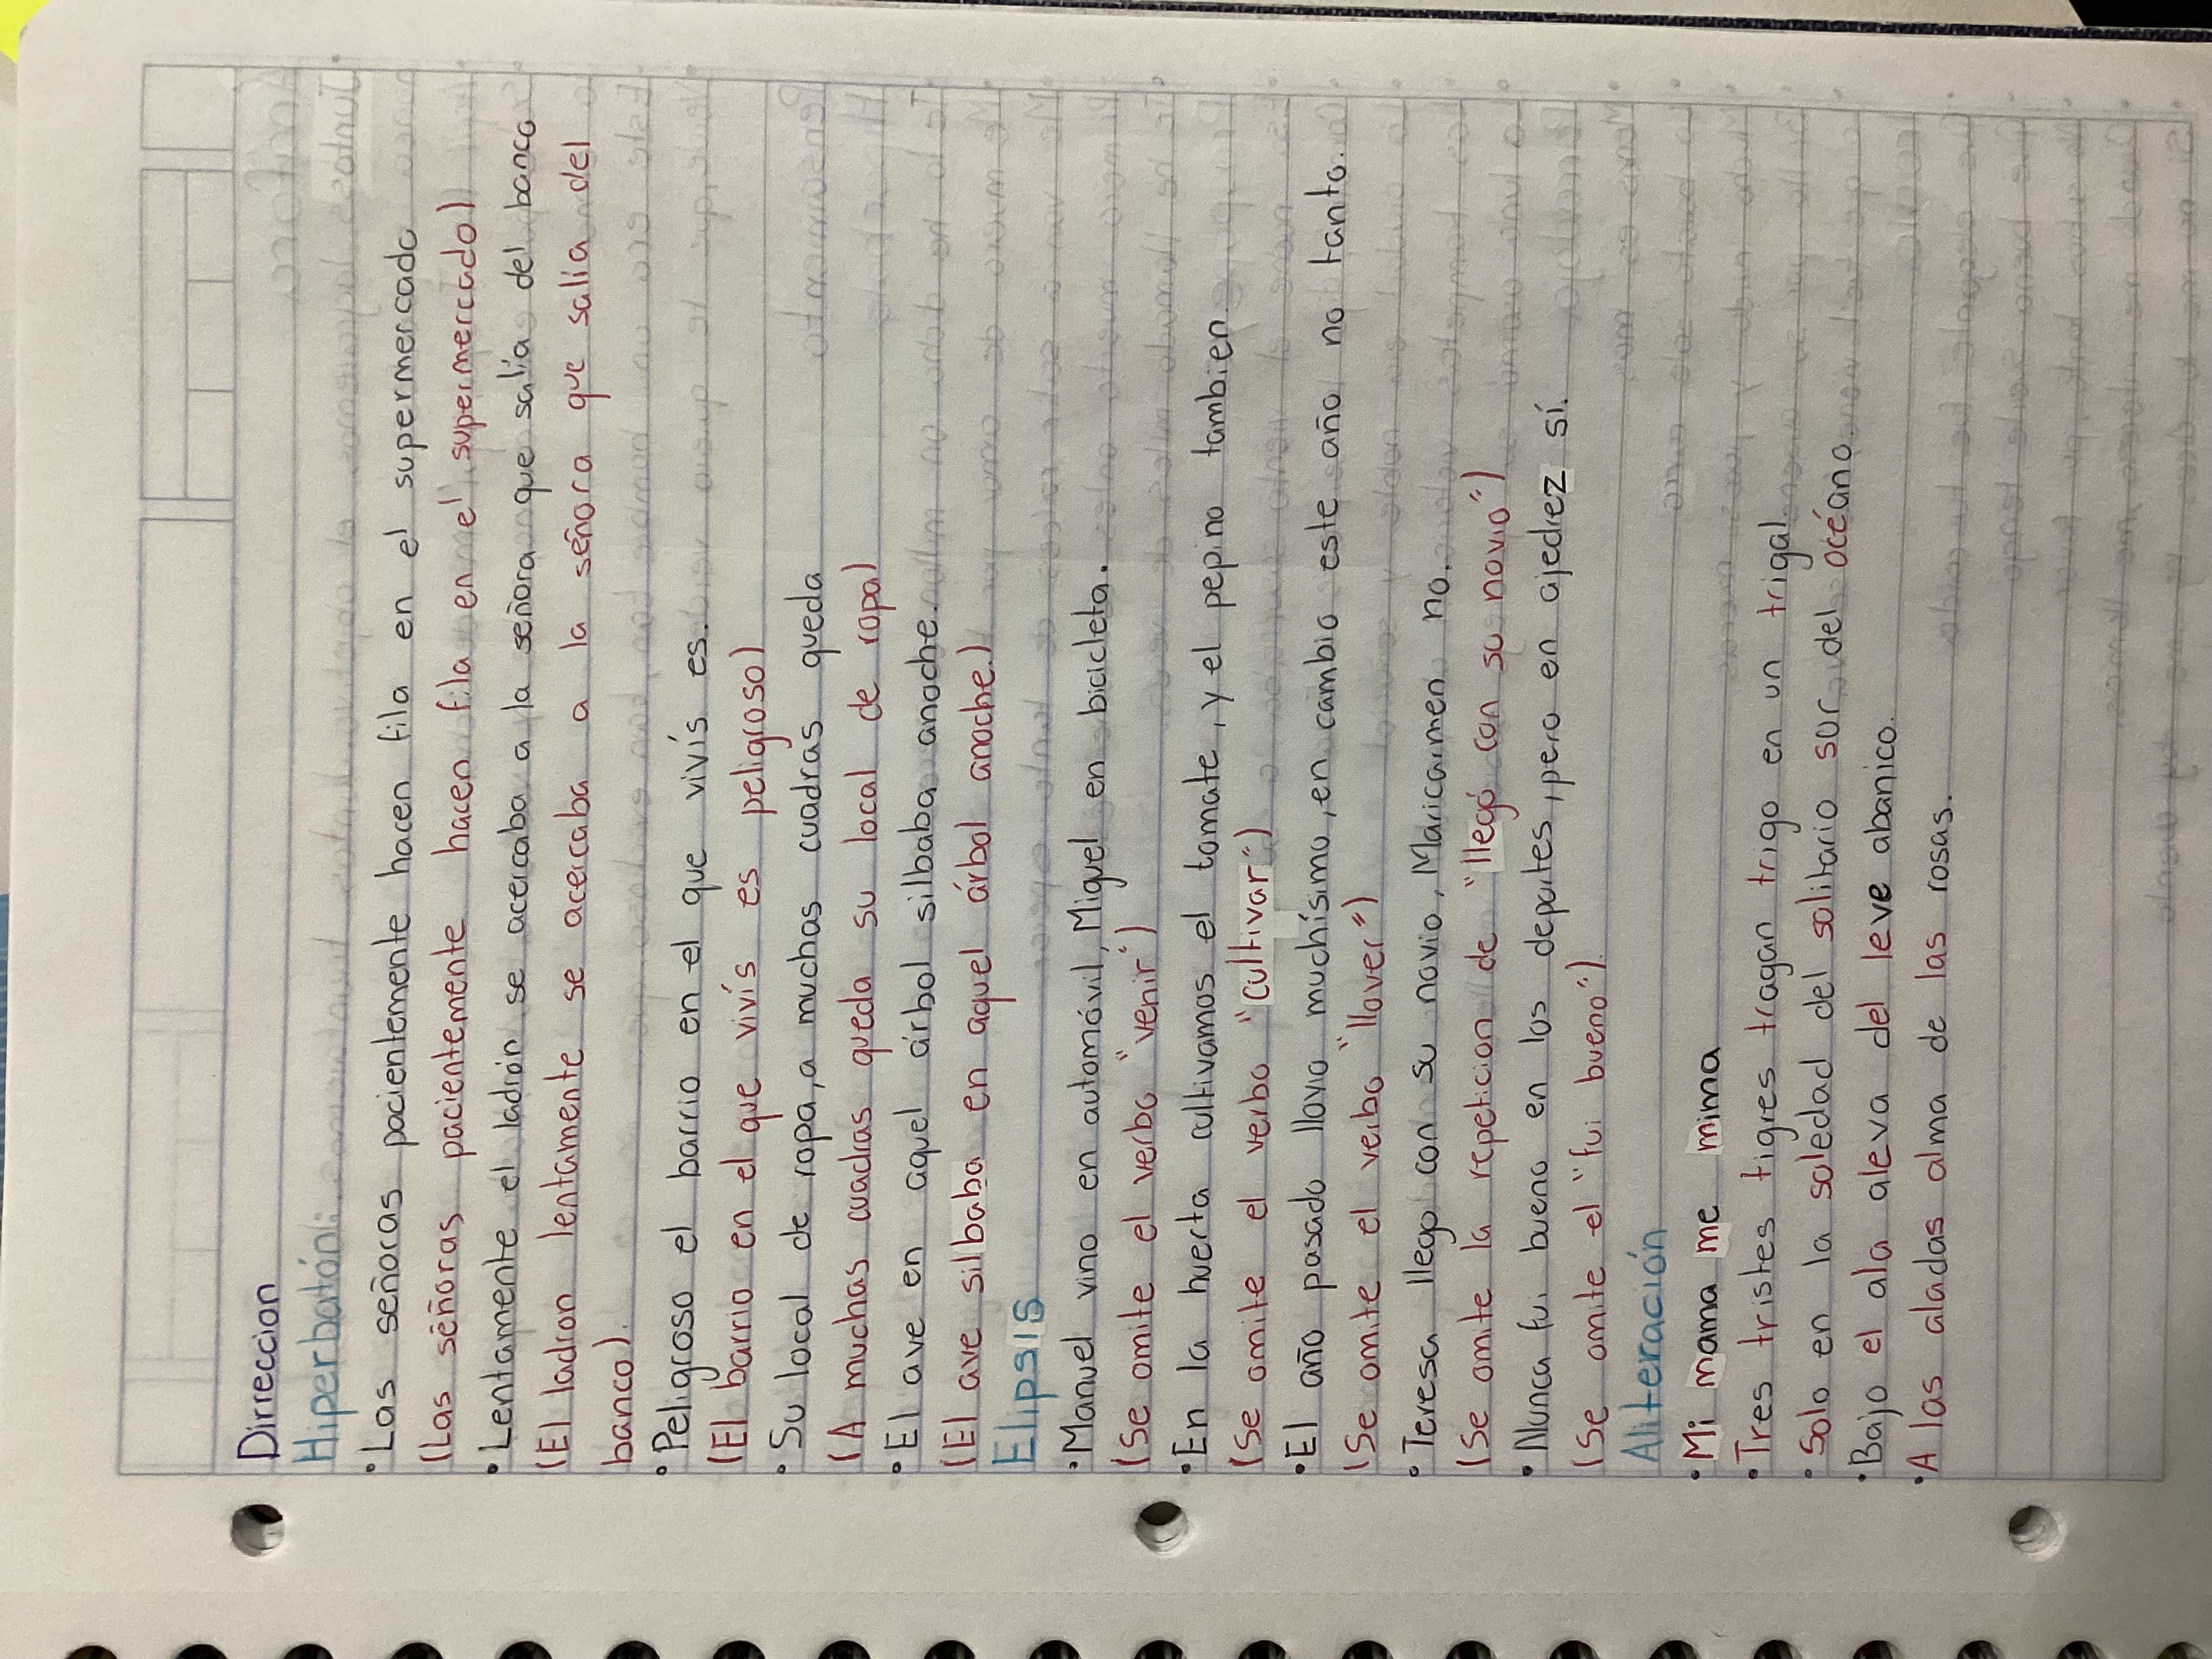 Dirreccion
Hiperbatón:
• Las señoras pacientemente hacen fila en el supermercado
(Las señoras pacientemente hacen fila en el supermercado)
• Lentamente el ladrón se acercaba a la señora que salía del banco
(El ladron lentamente se acercaba a la señora que salía del
banco).
• Peligroso el barrio en el que vivís es.
(El barrio en el que vivís es peligroso)
• Su local de ropa, a muchas cuadras queda
(A muchas cuadras queda su local de ropa)
• El ave en aquel árbol silbaba anoche.
(El ave silbaba en aquel árbol anoche.)
Elipsis
• Manuel vino en automóvil, Miguel en bicicleta.
(Se omite el verbo "venir")
• En la huerta cultivamos el tomate, y el pepino tambien
(Se omite el verbo "cultivar")
• El año pasado llovio muchísimo, en cambio este año no tanto.
(Se omite el verbo "llover")
• Teresa llego con su novio, Maricarmen no.
(Se omite la repeticion de "llegó con su novio")
• Nunca fui bueno en los deportes, pero en ajedrez sí.
(Se omite el "fui bueno").
Aliteración
• Mi mama me mima
• Tres tristes tigres tragan trigo en un trigal.
• Solo en la soledad del solitario sur del océano.
• Bajo el ala aleva del leve abanico.
• A las aladas alma de las rosas.